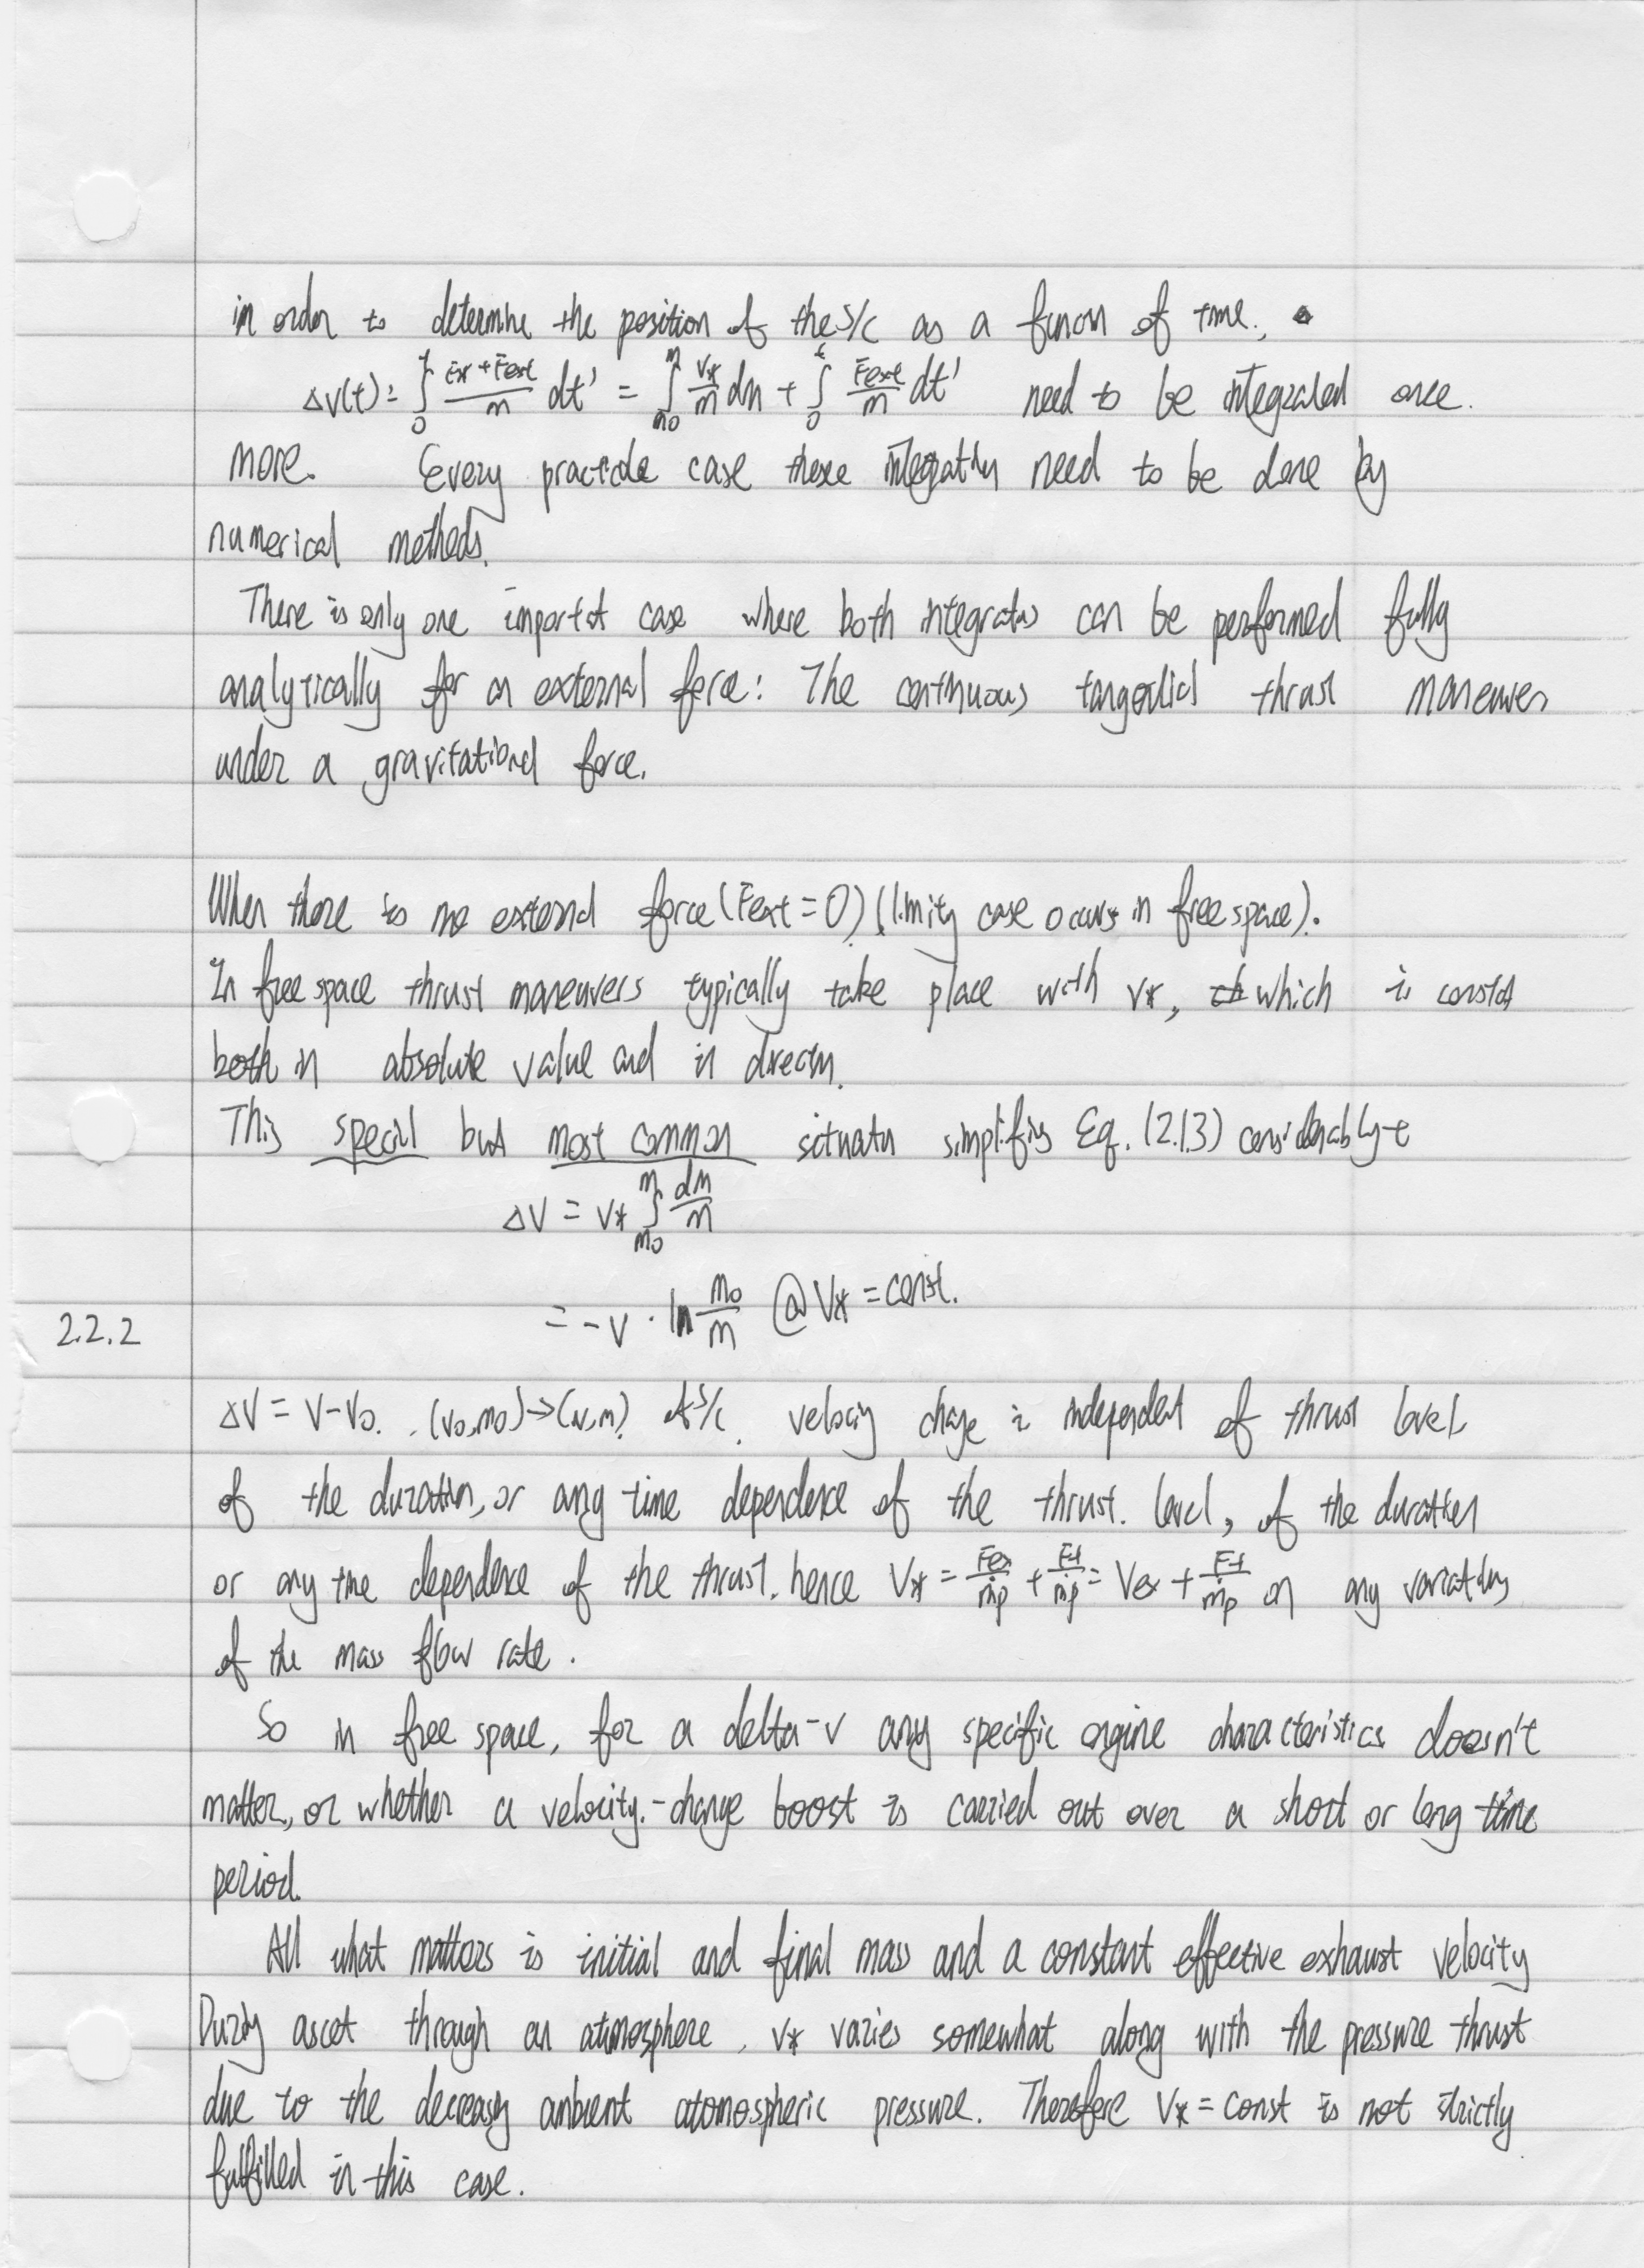 in order to determine the position of the S/C as a funcon of time.
Δv(t) = ∫₀ᵗ (F* + Fext)/m dt' = ∫ₘ₀ᵐ V*/m dm + ∫₀ᵗ Fext/m dt' need to be integrated once.
more. Every practicle case these need to be done by
numerical methods.
There is only one importat case where both can be performed fully
analytically for an external force: The continuous thrust maneuver
under a gravitational force.
When there is no external force (Fext = 0) (limity case occurs in free space).
In free space thrust maneuvers typically take place with v*, which is
both in absolute value and in
This but most common simplifis Eq. (2.1.3)
ΔV = V* ∫ₘ₀ᵐ dm/m
= -V · ln m₀/m @ V* = const.
2.2.2
ΔV = V-V₀. (v₀,m₀)→(v,m) S/C. is independent of thrust level
of the duration, or any time dependence of the thrust. level, of the duration
or any time dependence of the thrust. hence V* = Fex/ṁp + = Vex + on any
of the mass flow rate.
So in free space, for a delta-v any specific engine characteristics doesn't
matter, or whether a velocity.-change boost is carried out over a short or long time
period.
All what matters is initial and final mass and a constant effective exhaust velocity
through an atmosphere, v* varies somewhat along with the pressure thrust
due to the ambient atomospheric pressure. Therefore V* = const is not strictly
fulfilled in this case.